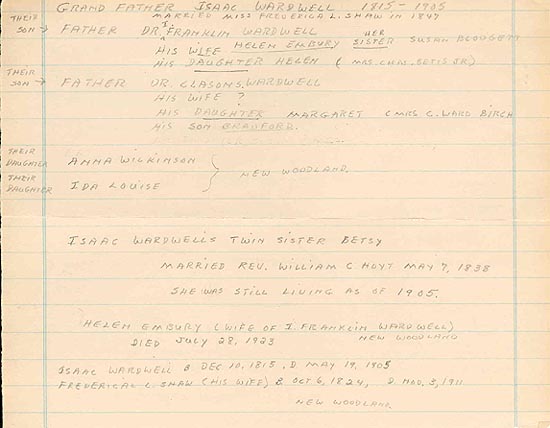 GRAND FATHER ISAAC WARDWELL 1815 - 1905
MARRIED MISS FREDERICA L. SHAW IN 1847
THEIR SON → FATHER DR. I. FRANKLIN WARDWELL
HIS WIFE HELEN EMBURY HER SISTER SUSAN BLODGETT
HIS DAUGHTER HELEN (MRS. CHW. BETTS JR)
THEIR SON → FATHER DR. CLASON S. WARDWELL
HIS WIFE ?
HIS DAUGHTER MARGARET (MRS C. WARD BIRCH
HIS SON BRADFORD.
THEIR DAUGHTER ANNA WILKINSON
THEIR DAUGHTER IDA LOUISE } NEW WOODLAND.
ISAAC WARDWELLS TWIN SISTER BETSY
MARRIED REV. WILLIAM C HOYT MAY 7, 1838
SHE WAS STILL LIVING AS OF 1905.
HELEN EMBURY (WIFE OF I. FRANKLIN WARDWELL)
DIED JULY 28, 1923 NEW WOODLAND
ISAAC WARDWELL B DEC 10, 1815, D. MAY 19, 1905
FREDERICAL L. SHAW (HIS WIFE) B OCT 6, 1824, D. NOV. 5, 1911
NEW WOODLAND.